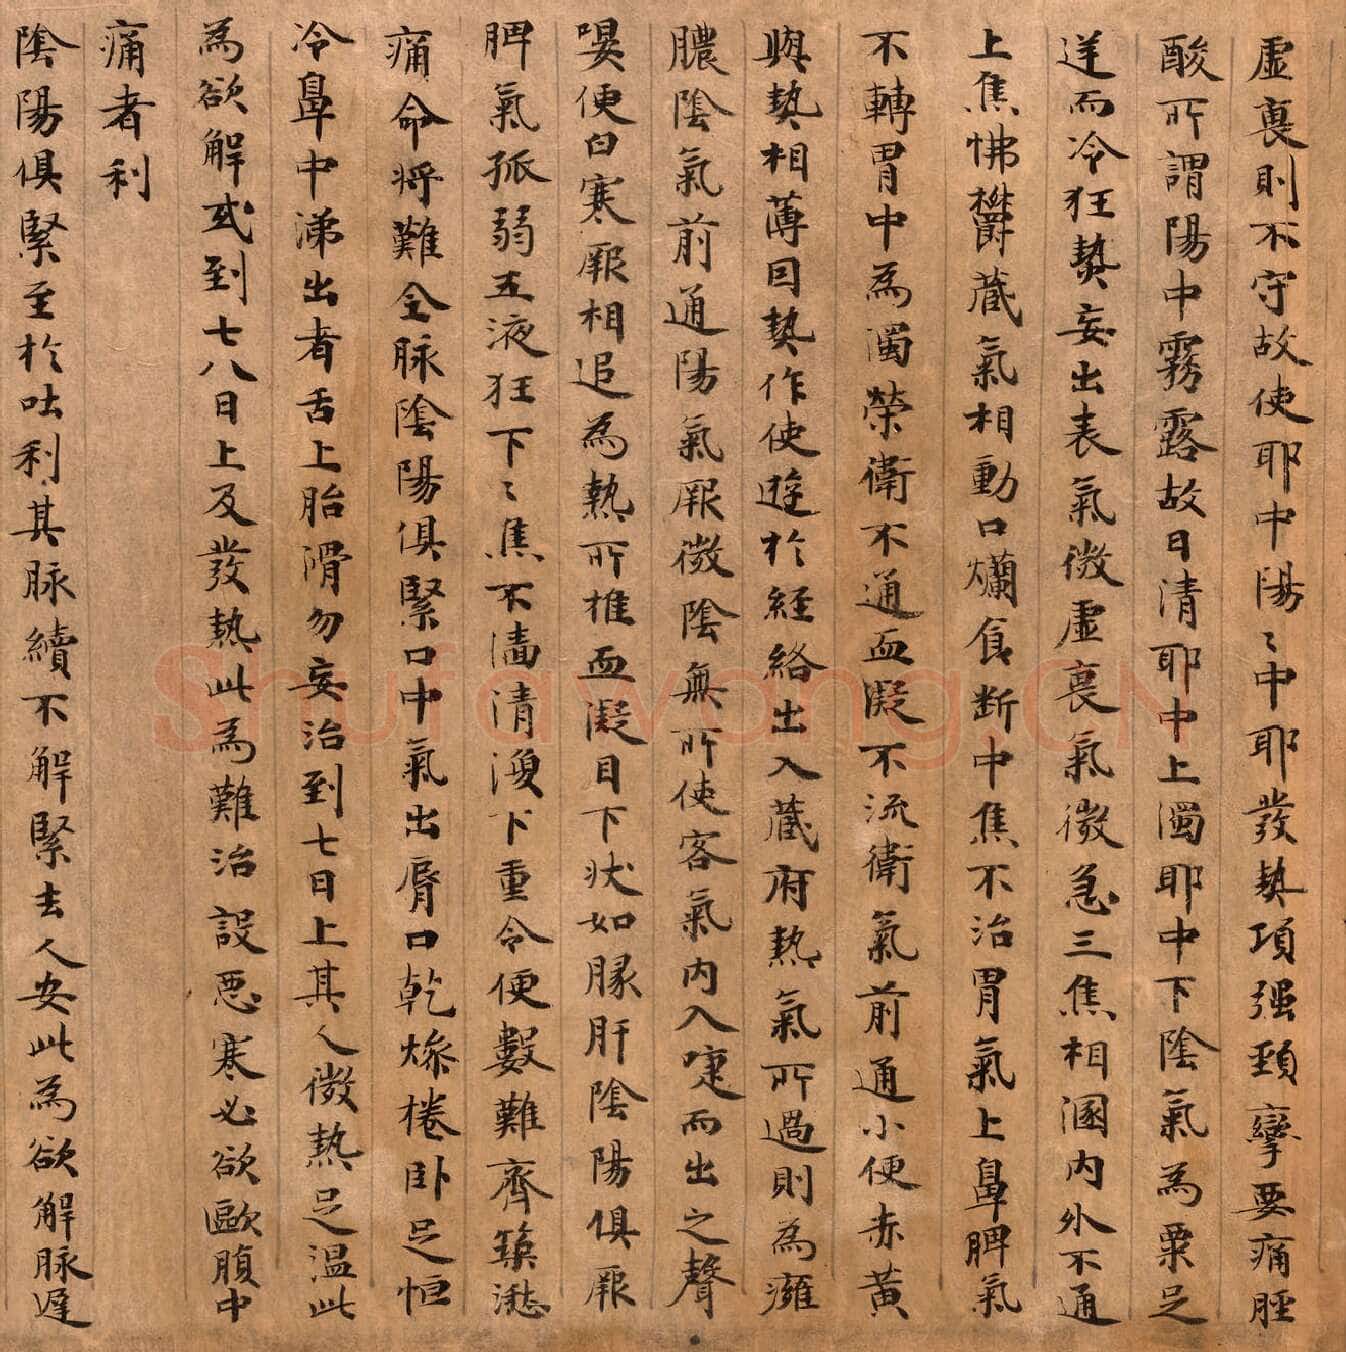 虛裏則不守故使耶中陽〻中耶發熱項强頸攣要痛脛
酸所謂陽中霧露故曰清耶中上濁耶中下陰氣為粟足
逆而冷狂熱妄出表氣微虛裏氣微急三焦相溷内外不通
上焦怫欝蔵氣相動口爛食断中焦不治胃氣上鼻脾氣
不轉胃中為濁榮衛不通血凝不流衛氣前通小便赤黄
與熱相薄因熱作使遊於經絡出入蔵府熱氣所過則為癰
膿陰氣前通陽氣厥微陰無所使客氣内入嚏而出之聲
㗋便白寒厥相追為熱所推血凝自下状如豚肝陰陽俱厥
脾氣孤弱五液狂下〻焦不濇清溲下重令便數難齊築湫
痛命将難全脉陰陽俱緊口中氣出脣口乾燥棬卧足恒
冷鼻中涕出者舌上胎滑勿妄治到七日上其人微熱足温此
為欲解或到七八日上及發熱此為難治設惡寒必欲歐腹中
痛者利
陰陽俱緊至於吐利其脉續不解緊去人安此為欲解脉遲
Shufawang.CN